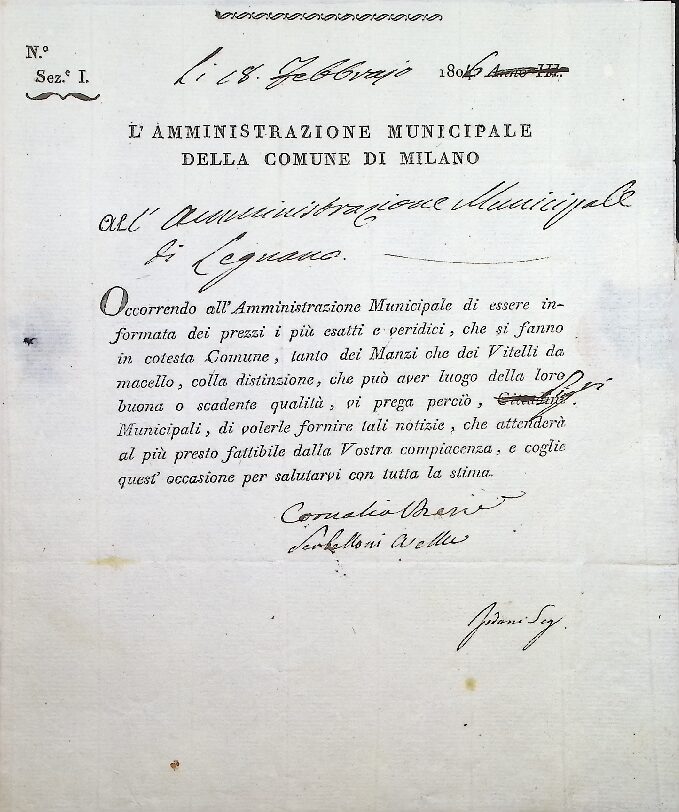 N.º
Sez.e I.
Li 18. Febbrajo 1806 Anno III.
L'AMMINISTRAZIONE MUNICIPALE
DELLA COMUNE DI MILANO
All' Amministrazione Municipale
di Legnano.
Occorrendo all'Amministrazione Municipale di essere in-
formata dei prezzi i più esatti e veridici, che si fanno
in cotesta Comune, tanto dei Manzi che dei Vitelli da
macello, colla distinzione, che può aver luogo della loro
buona o scadente qualità, vi prega perciò, Cittadini Sigri.
Municipali, di volerle fornire tali notizie, che attenderà
al più presto fattibile dalla Vostra compiacenza, e coglie
quest' occasione per salutarvi con tutta la stima.
Serbelloni
Seg.